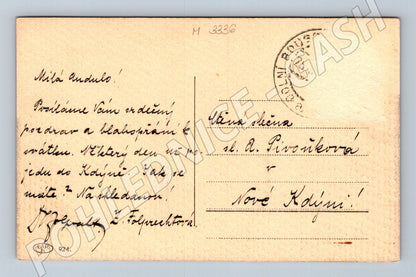 M 3336
DOLNÍ BOUS
Milá Andulo!
Posíláme Vám srdečný
pozdrav a blahopřání k
svátku. Některý den
jedu do Kdýně. Jak se
máte? Na shledanou!
Z. Folprechtová.
Ctěná slečna
sl. A. Pivoňková
v
Nové Kdýni!
924.
POHLEDNICE - SASH